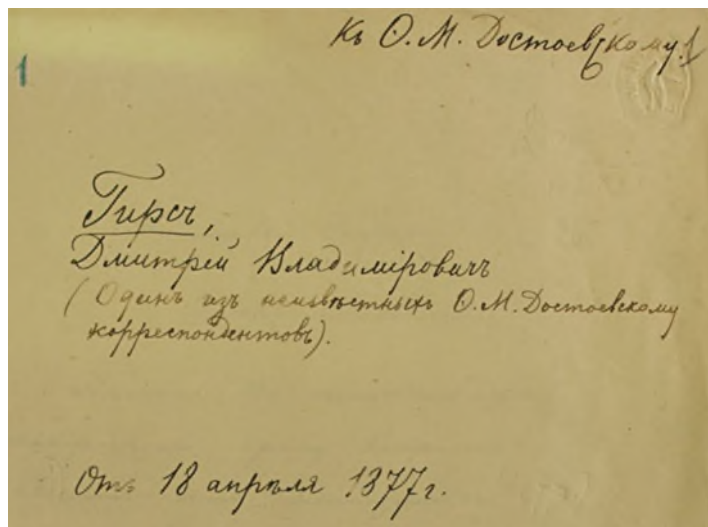 Къ Ѳ. М. Достоевскому.
1
Гирсъ,
Дмитрій Владиміровичъ
(Одинъ изъ неизвѣстныхъ Ѳ. М. Достоевскому
корреспондентовъ).
Отъ 18 апрѣля 1877 г.